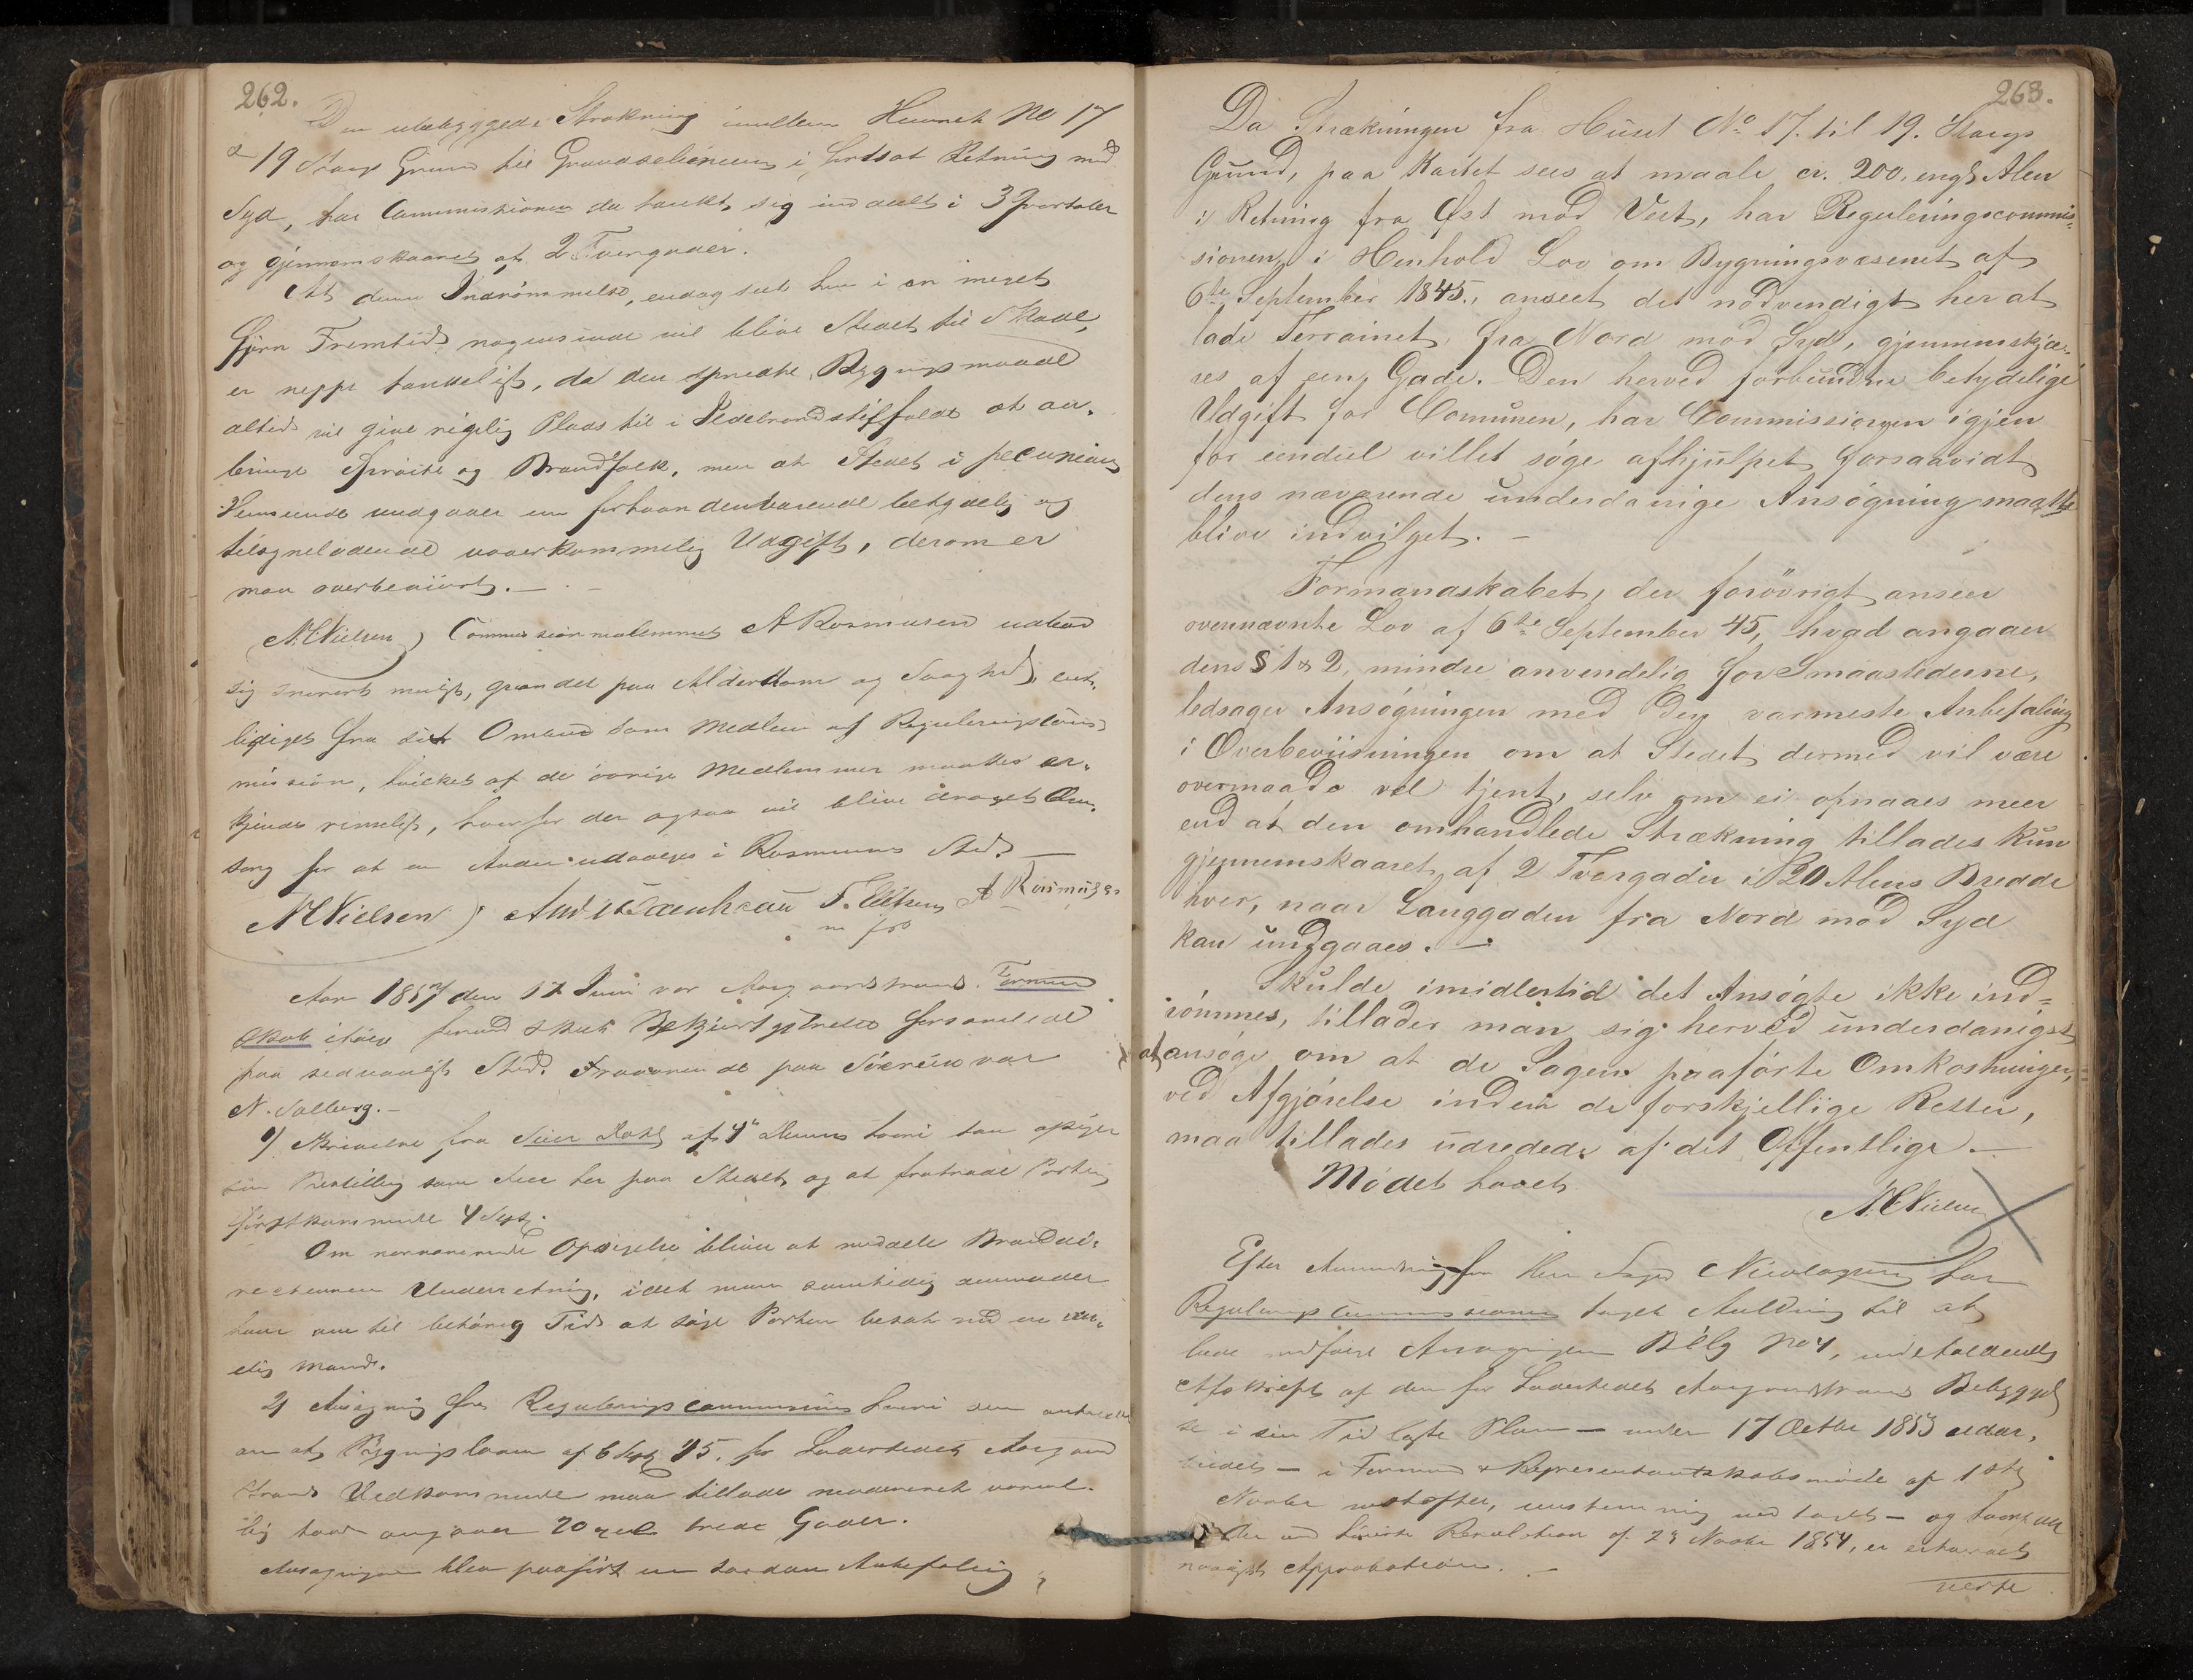 262.
Den ubebyggede Strækning imellem Huuset No 17
& 19 Aargs Grund til Grændselinien i fortsat Retning mod
Syd, har Commissionen da tænkt sig inddeelt i 3 Qvartaler
og gjennemskaaret af 2 Tvergader.
At denne Indrømmelse, endog seet hen i en meget
fjern Fremtid nogensinde vil blive Stedet til Skade,
er neppe tænkeligt, da den spredte Bygningsmaade
altid vil give rigelig Plads til i Ildebrandstilfælde at an-
bringe Sprøite og Brandfolk, men at Stedet i pecuniair
Henseende undgaaer en forhaandenværende betydelig og
tilsyneladende uoverkommelig Udgift, derom er
man overbeviist. —
N.C Nielsen) Commissionsmedlemmet A Rasmusen udbad
sig snarest muligt, grundet paa Alderdom og Svaghed, ent-
lediget fra sit Ombud som Medlem af Reguleringscom-
mission, hvilket af de øvrige Medlemmer maatte er-
kjendes rimeligt, hvorfor der ogsaa vil blive draget Om-
sorg for at en Anden udvælges i Rasmusens Sted. —
N.C Nielsen) F. Ellefsen A Rasmusen
m f P
Aar 1857 den 17 Juni var Aasgaardstrands Formand
skab efter forudskeet Bekjendtgjørelse forsamlede
paa sedvanligt Sted. Fraværende paa Søreise var
N. Solberg. —
1) Skrivelse fra Feier Dahl af 4de Dennes hvori han opsiger
sin Bestilling som Feier her paa Stedet og at fratræde Posten
førstkommende 4 Sept.
Om nærværende Opsigelse bliver at meddele Branddi-
recteuren Underretning, idet man samtidig anmoder
ham om til behørig Tid at søge Posten besat med en ædru-
elig Mand.
2) Ansøgning fra Reguleringscommissionen hvori den andrager
om at Bygningsloven af 6 Sept 45. for Ladestedet Aasgaard
strands Vedkommende maa tillades modereret navnl.
lig hvad angaaer 20 Alens brede Gader.
Ansøgningen blev paaført en saadan Anbefaling;
263.
Da Strækningen fra Huset No 17. til 19. Aargs
Grund, paa Kartet sees at maale cr. 200. engl Alen
i Retning fra Øst mod Vest, har Reguleringscommis-
sionen, i Henhold Lov om Bygningsvæsenet af
6te September 1845., anseet det nødvendigt her at
lade Terrainet, fra Nord mod Syd, gjennemskjæ-
res af een Gade. Den herved forbundne betydelige
Udgift for Comunen, har Commissionen igjen
for eendeel villet søge afhjulpet forsaavidt
dens nærværende underdanige Ansøgning maatte
blive indvilget. —
Formandskabet, der forøvrigt anseer
ovennævnte Lov af 6te September 45, hvad angaaer
dens § 1 & 2, mindre anvendelig for Smaastederne,
ledsager Ansøgningen med den varmeste Anbefaling
i Overbeviisningen om at Stedet dermed vil være
overmaade vel tjent, selv om ei opnaaes meer
end at den omhandlede Strækning tillades kun
gjennemskaaret af 2 Tvergader i 20 Alens Bredde
hver, naar Langgaden fra Nord mod Syd
kan undgaaes. —
Skulde imidlertid det Ansøgte ikke ind-
rømmes, tillader man sig herved underdanigst
at ansøge om at de Sagen paaførte Omkostninger,
ved Afgjørelse inden de forskjellige Retter,
maa tillades udredede af det Offentlige. —
Mødet hævet
N.C Nielsen
Efter Anmodning fra Herr Nicolaysen har
Reguleringscommissionen taget Anledning til at
lade udføre Ansøgningen Bilg No 4, indeholdende
Afskrift af den for Ladestedet Aasgaardstrands Bebyggel
se i sin Tid lagte Plan — under 17 Octbr 1853 udar-
beidet — i Formand & Representantskabsmøde af 1ste
Novbr næstefter, eenstemmig vedtaget — og hvorpaa
der ved høieste Resolution af 23 Novbr 1854, er erhvervet
naadigst Approbation. —
verte